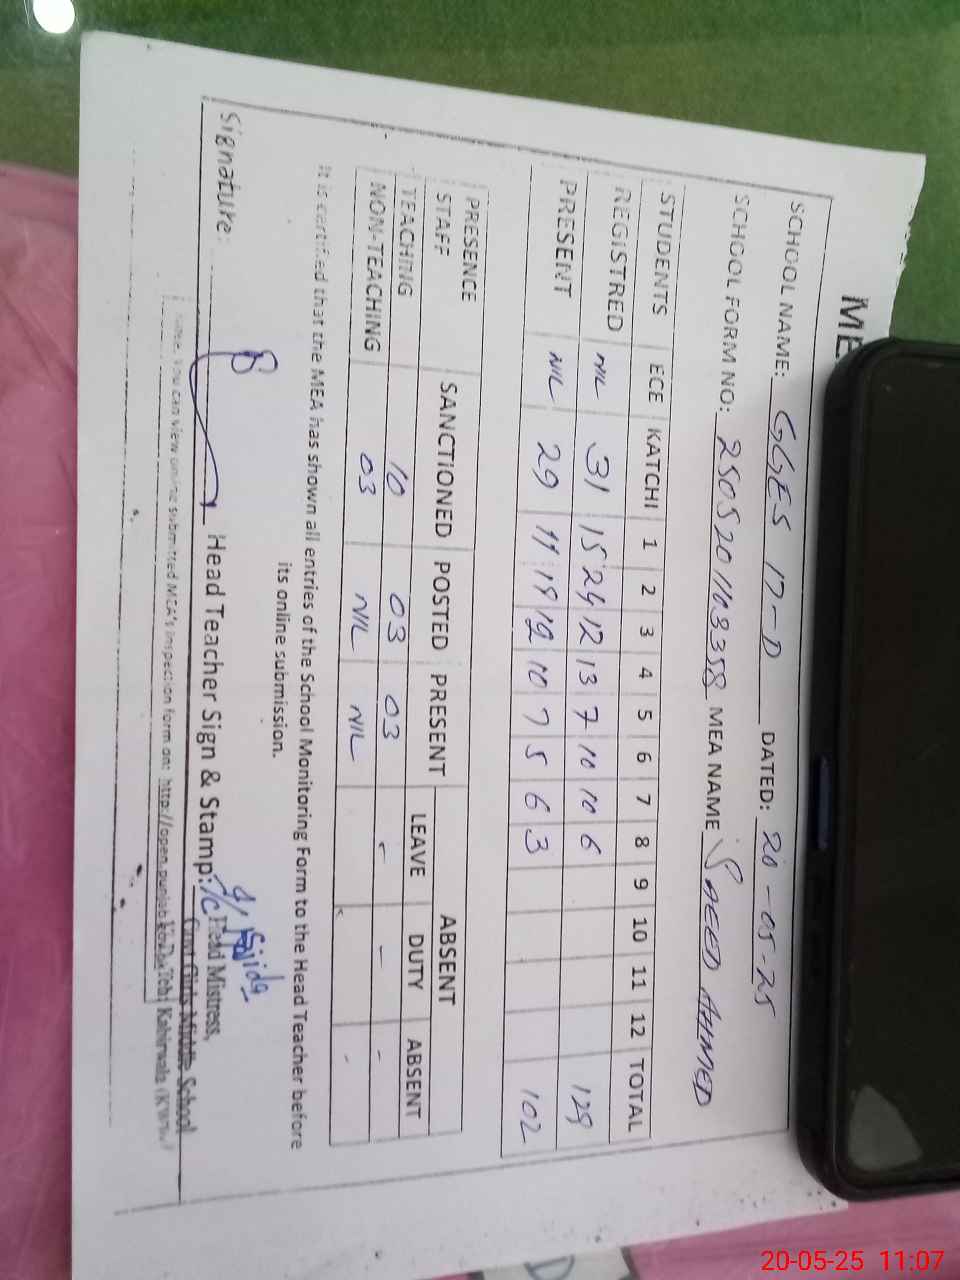 ME
SCHOOL NAME: GGES 17-D DATED: 20-05-25
SCHOOL FORM NO: 2505201103358 MEA NAME SAEED AHMED
STUDENTS ECE KATCHI 1 2 3 4 5 6 7 8 9 10 11 12 TOTAL
REGISTRED NIL 31 15 24 12 13 7 10 10 6 129
PRESENT NIL 29 11 19 12 10 7 5 6 3 102
PRESENCE SANCTIONED POSTED PRESENT ABSENT
STAFF LEAVE DUTY ABSENT
TEACHING 10 03 03 - - -
NON-TEACHING 03 NIL NIL - -
It is certified that the MEA has shown all entries of the School Monitoring Form to the Head Teacher before
its online submission.
Signature: Head Teacher Sign & Stamp:
I/C Head Mistress,
Govt Girls Middle School
Teh: Kabirwala (KWL)
you can view online submitted MEA's inspection form on: http://open.punjab
20-05-25 11:07